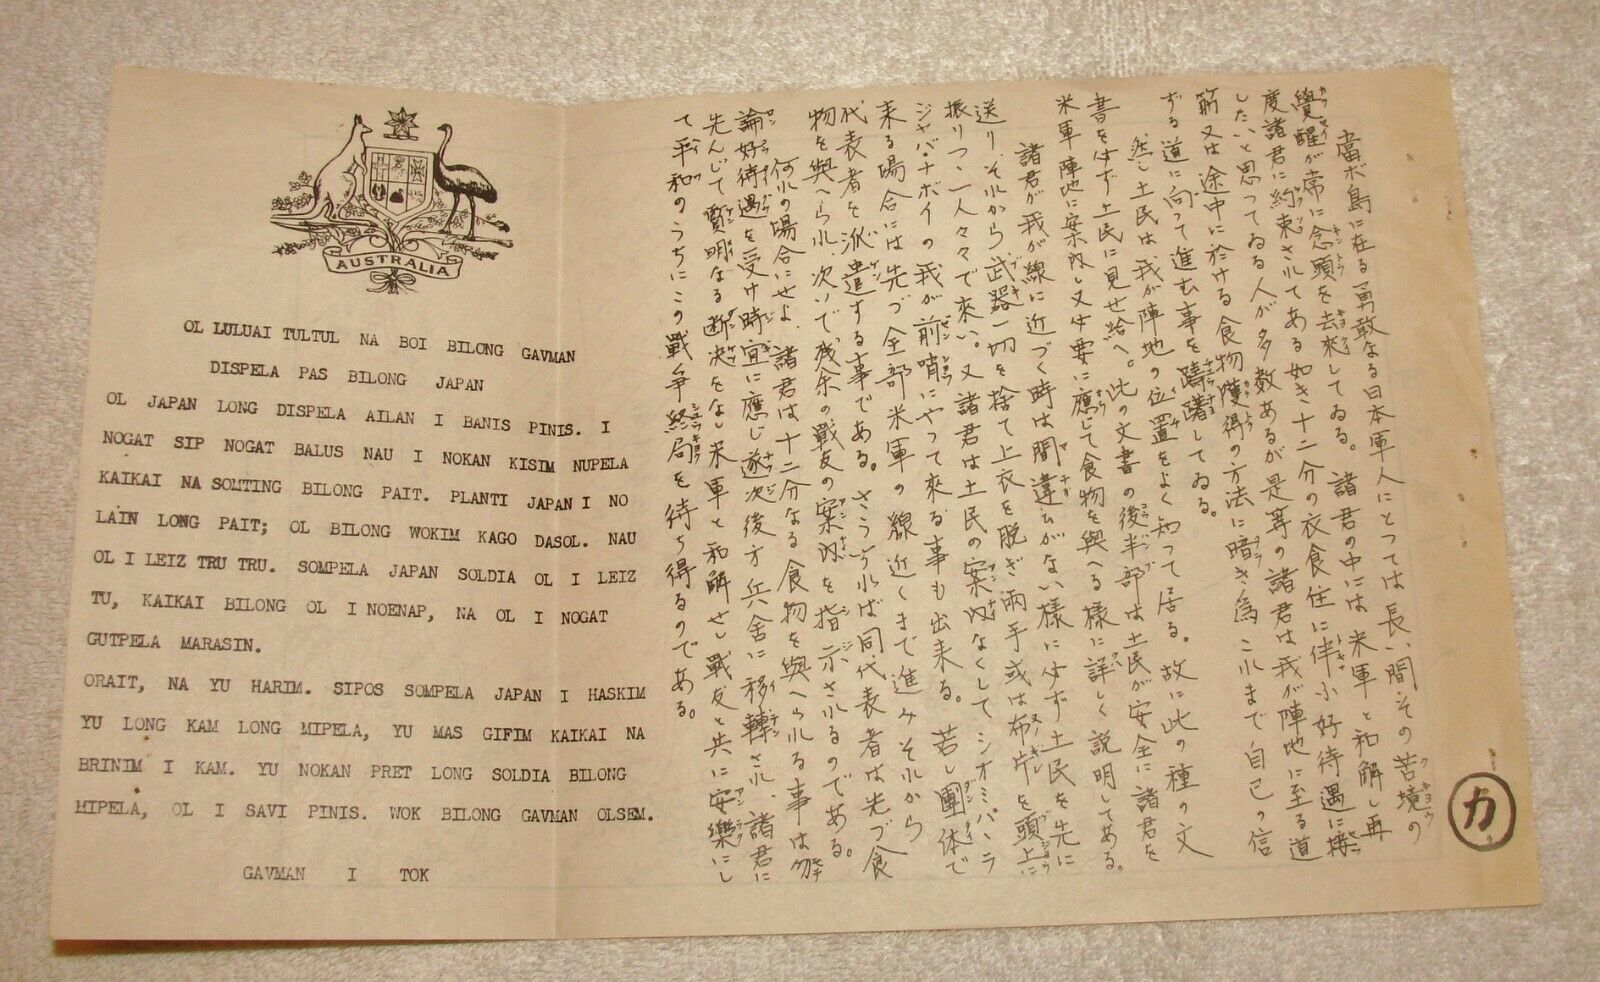 AUSTRALIA
OL LULUAI TULTUL NA BOI BILONG GAVMAN
DISPELA PAS BILONG JAPAN
OL JAPAN LONG DISPELA AILAN I BANIS PINIS. I
NOGAT SIP NOGAT BALUS NAU I NOKAN KISIM NUPELA
KAIKAI NA SOMTING BILONG PAIT. PLANTI JAPAN I NO
LAIN LONG PAIT; OL BILONG WOKIM KAGO DASOL. NAU
OL I LEIZ TRU TRU. SOMPELA JAPAN SOLDIA OL I LEIZ
TU, KAIKAI BILONG OL I NOENAP, NA OL I NOGAT
GUTPELA MARASIN.
ORAIT, NA YU HARIM. SIPOS SOMPELA JAPAN I HASKIM
YU LONG KAM LONG MIPELA, YU MAS GIFIM KAIKAI NA
BRINIM I KAM. YU NOKAN PRET LONG SOLDIA BILONG
MIPELA, OL I SAVI PINIS. WOK BILONG GAVMAN OLSEM.
GAVMAN I TOK
當ボ島に在る勇敢なる日本軍人にとつては長い間その苦境の
覺醒が常に念頭を去來してゐる。諸君の中には米軍と和解し再
度諸君に約束されてある如き十二分の衣食住に伴ふ好待遇に接
したいと思つてゐる人が多数あるが是等の諸君は我が陣地に至る道
筋又は途中に於ける食物獲得の方法に暗き為これまで自己の信
ずる道に向つて進む事を躊躇してゐる。
然し土民は我が陣地の位置をよく知つて居る。故に此の種の文
書を必ず土民に見せ給へ。此の文書の後半部は土民が安全に諸君を
米軍陣地に案内し又必要に應じて食物を與へる様に詳しく説明してある。
諸君が我が線に近づく時は間違ひがない様に必ず土民を先に
送り、それから武器一切を捨て上衣を脱ぎ兩手或は布片を頭上に
振りつゝ一人々々で來い。又諸君は土民の案内なくしてシオミ、パンラ
ジャバ、ナボイの我が前哨にやつて來る事も出来る。若し團体で
来る場合には先づ全部米軍の線近くまで進みそれから
代表者を派遣する事である。さうすれば同代表者は先づ食
物を與へられ、次いで残余の戰友の案内を指示されるのである。
何れの場合にせよ、諸君は十二分なる食物を與へられる事は勿
論好待遇を受け時宜に應じ遂次後方兵舍に移轉され、諸君に
先んじて賢明なる断決をなし米軍と和解せし戰友と共に安樂にし
て平和のうちにこの戰争終局を待ち得るのである。
カ